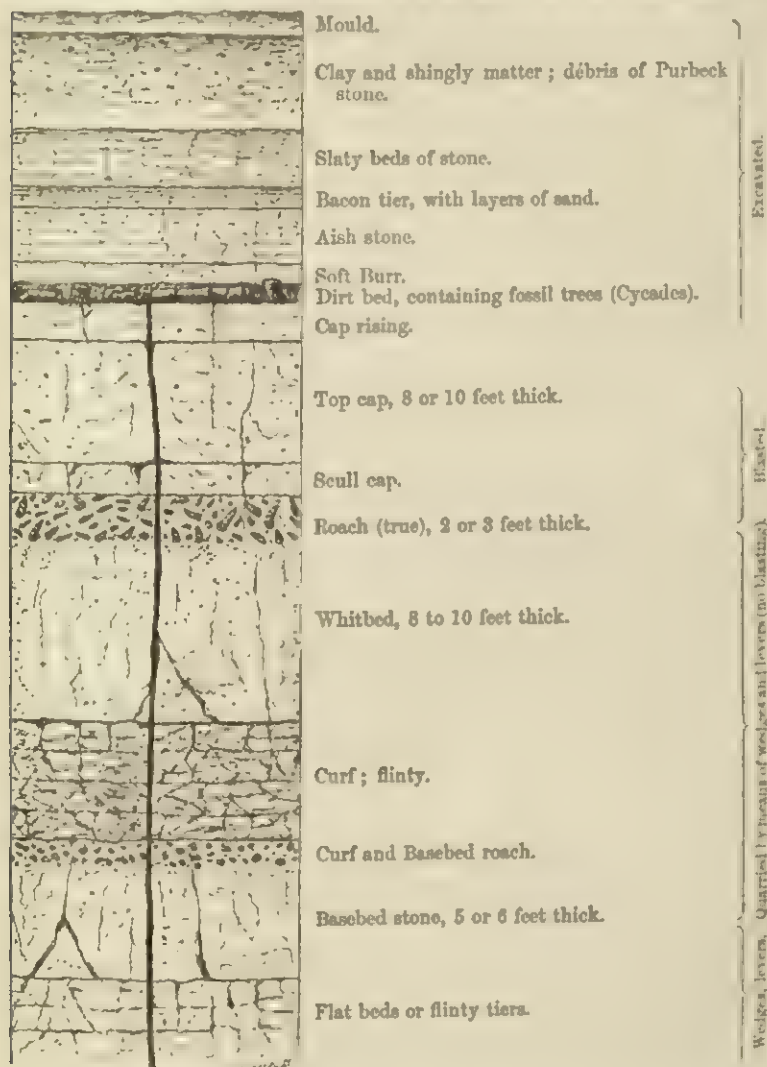 Mould.
Clay and shingly matter ; débris of Purbeck
stone.
Slaty beds of stone.
Bacon tier, with layers of sand.
Aish stone.
Soft Burr.
Dirt bed, containing fossil trees (Cycades).
Cap rising.
Top cap, 8 or 10 feet thick.
Scull cap.
Roach (true), 2 or 3 feet thick.
Whitbed, 8 to 10 feet thick.
Curf ; flinty.
Curf and Basebed roach.
Basebed stone, 5 or 6 feet thick.
Flat beds or flinty tiers.
Excavated.
Blasted.
Quarried by means of wedges and levers (no blasting).
Wedges, levers.